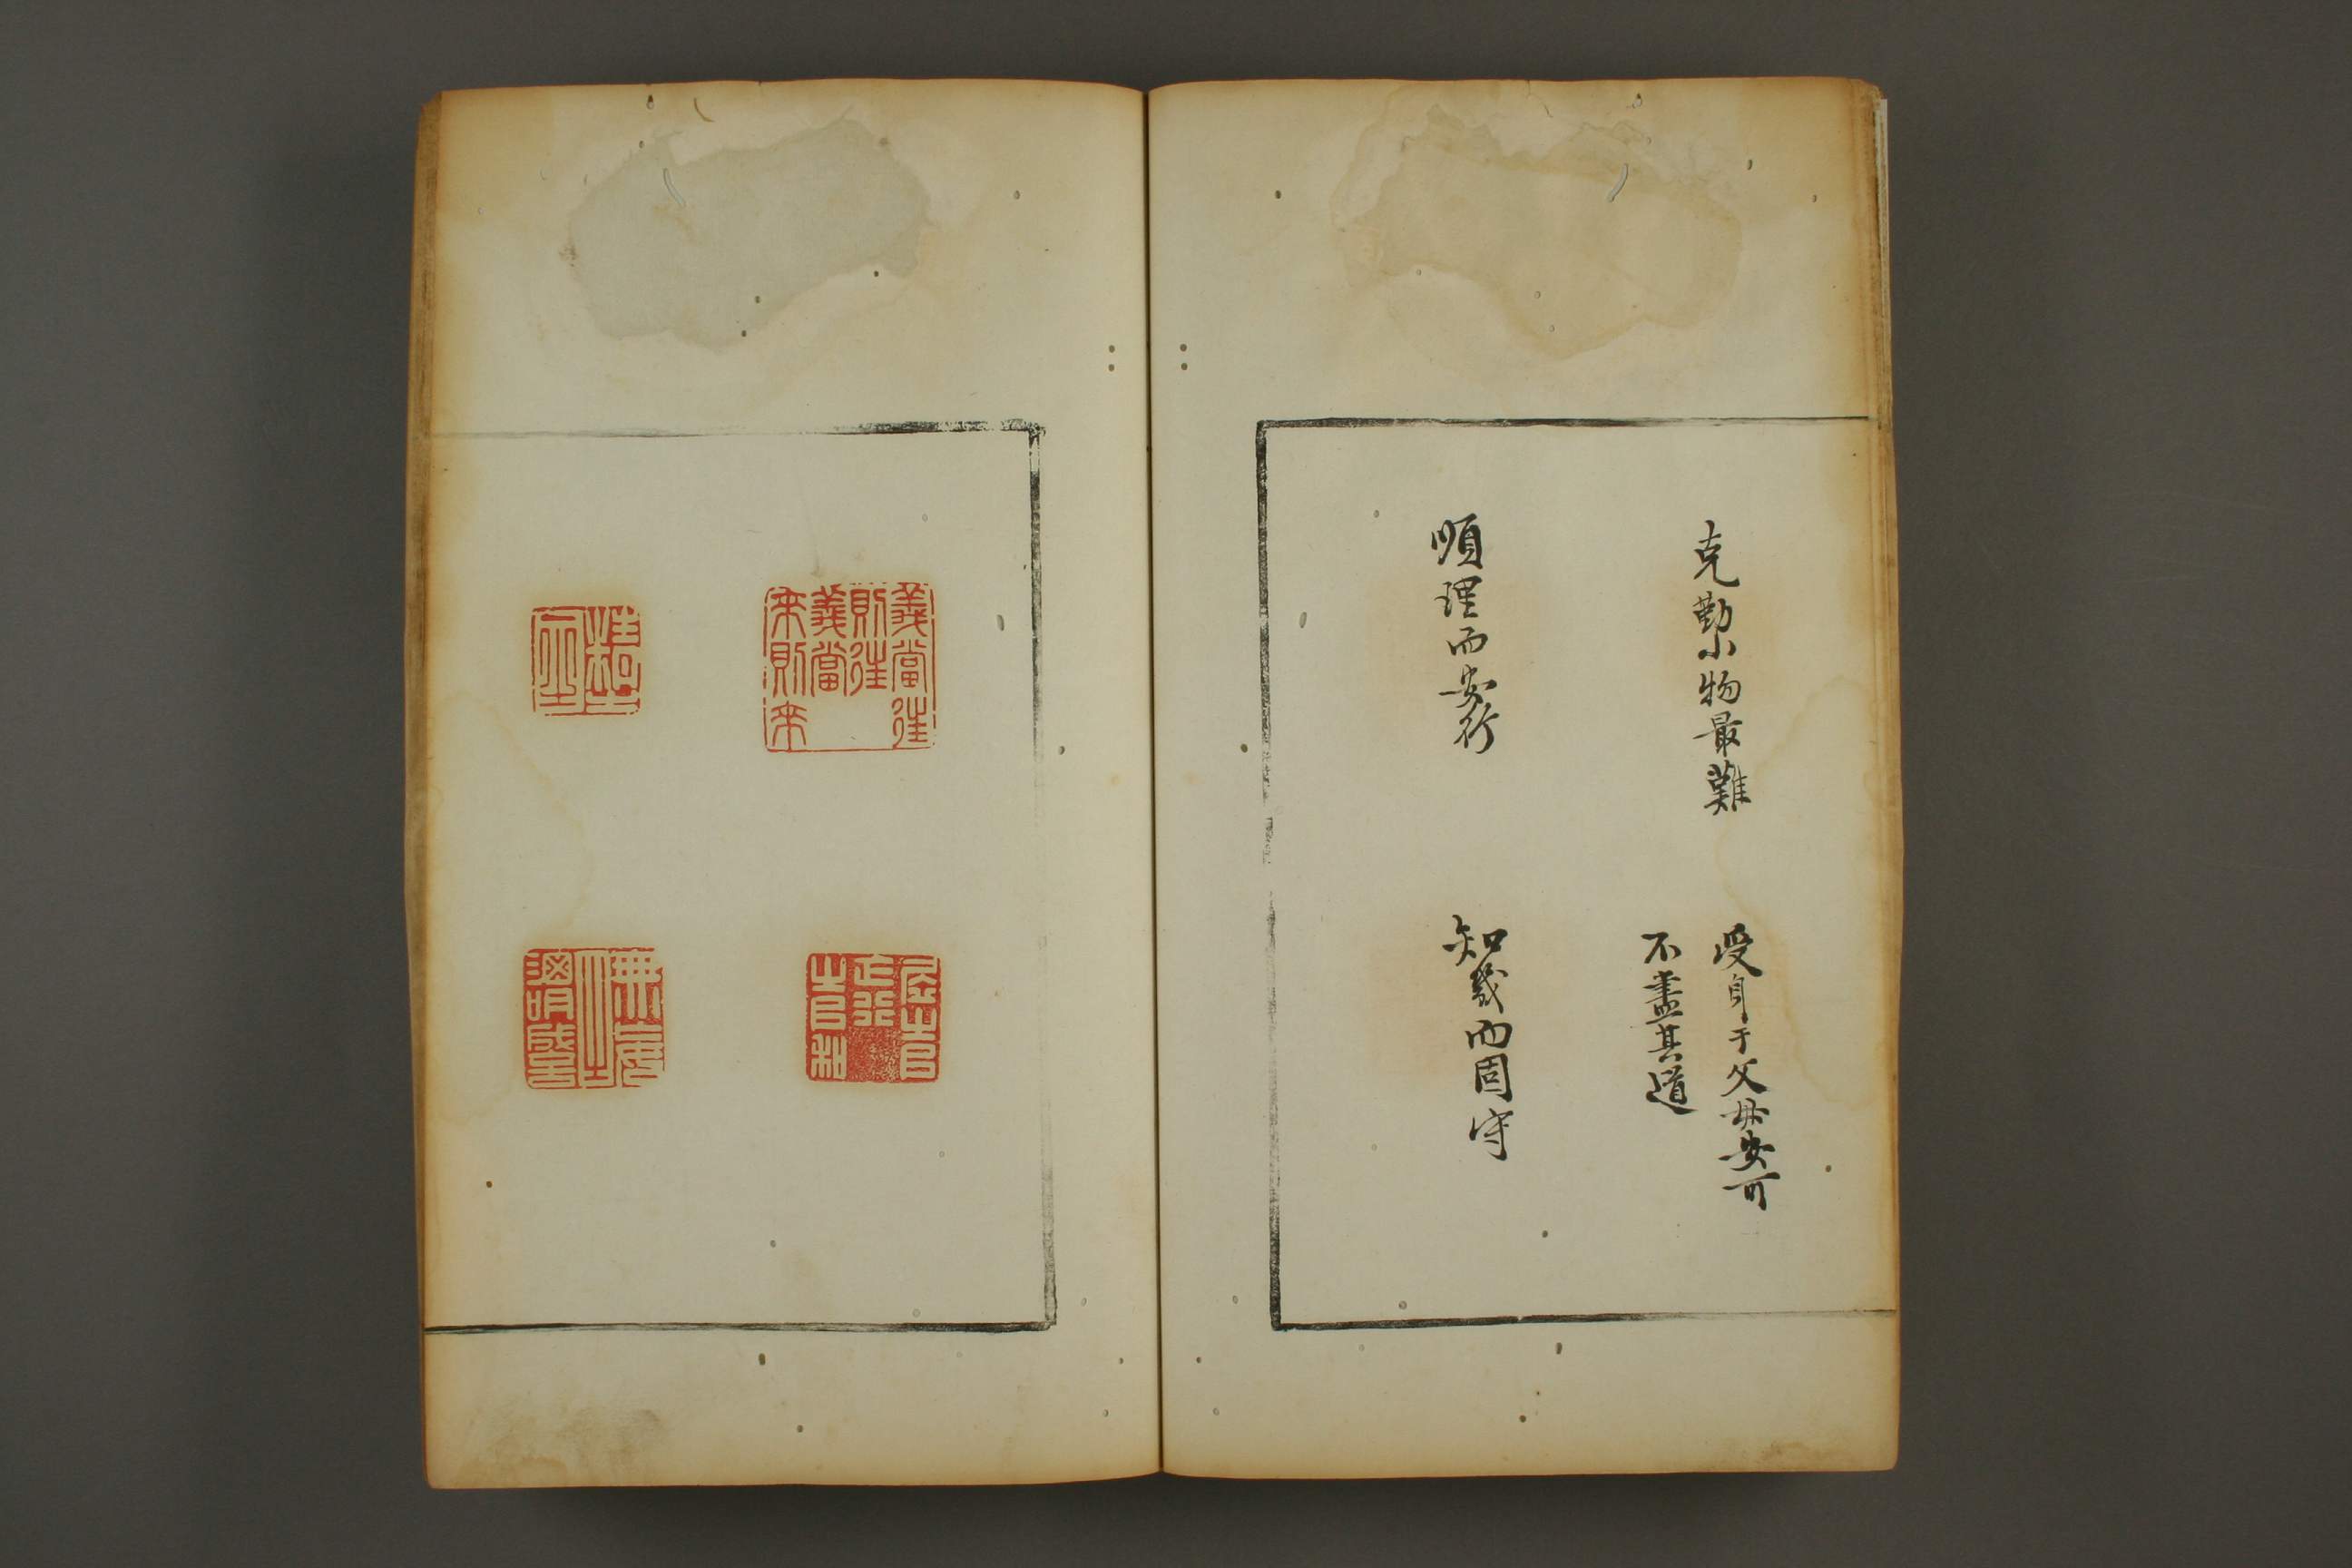 克勤小物最難
受身于父母安可
不盡其道
順理而安行
知幾而固守
義當往
則往
義當
來則來